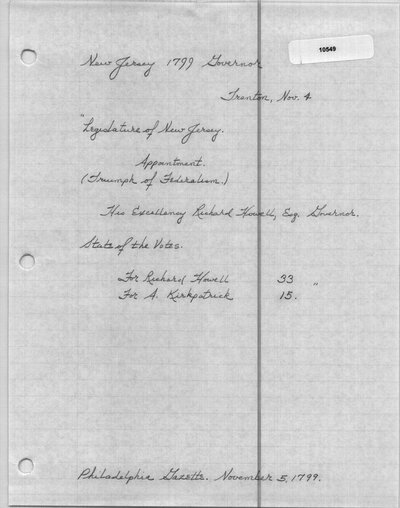 New Jersey 1799 Governor
10549
Trenton, Nov. 4
"Legislature of New Jersey.
Appointment.
(Triumph of Federalism.)
His Excellency Richard Howell, Esq. Governor.
State of the Votes.
For Richard Howell 33 "
For A. Kirkpatrick 15.
Philadelphia Gazette. November 5, 1799.